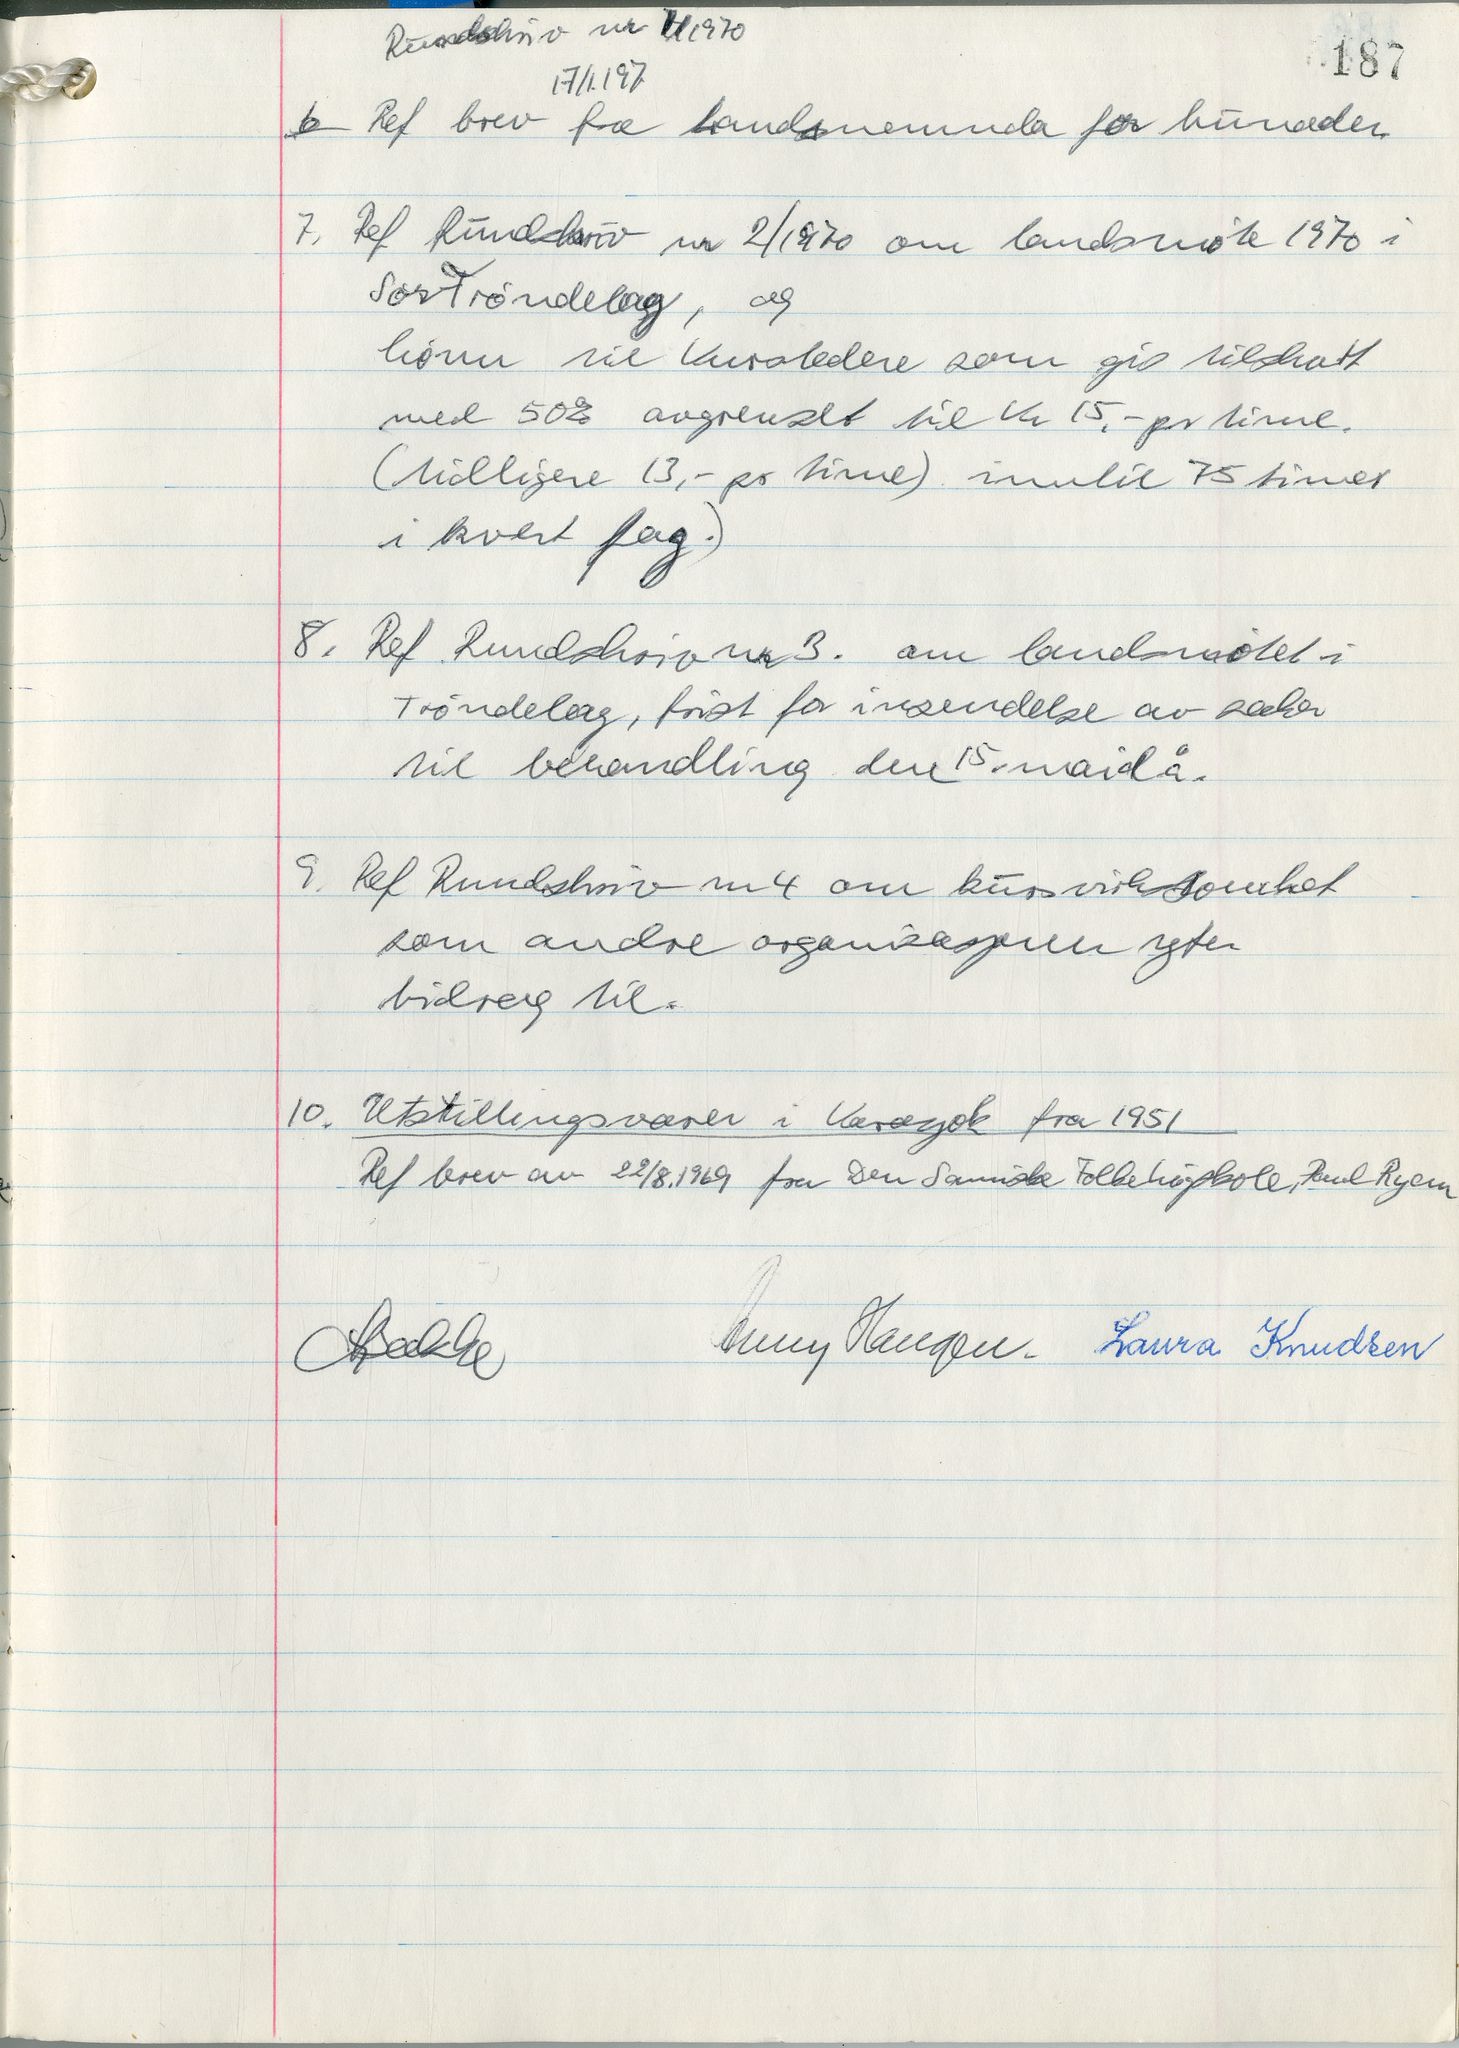 187
Rundskriv nr 1/1970
17/1.197
6 Ref brev fra landsnemnda for bunader.
7. Ref Rundskriv nr 2/1970 om landsmöte 1970 i
Sør Tröndelag, og
lönn til Kursledere som gis tilskott
med 50% avgrenset til Kr 15,- pr time.
(tidligere 13,- pr time) inntil 75 timer
i kvert fag.)
8. Ref Rundskriv nr 3. om landsmötet i
Tröndelag, frist for insendelse av saker
til behandling den 15. mai d å.
9. Ref Rundskriv nr 4 om kursvirksomhet
som andre organisasjoner yter
bidrag til.
10. Utstillingsvarer i Karasjok fra 1951
Ref brev av 22/8.1969 fra Den Samiske Folkehögskole, Poul Ryem
Bakke Haugen. Laura Knudsen